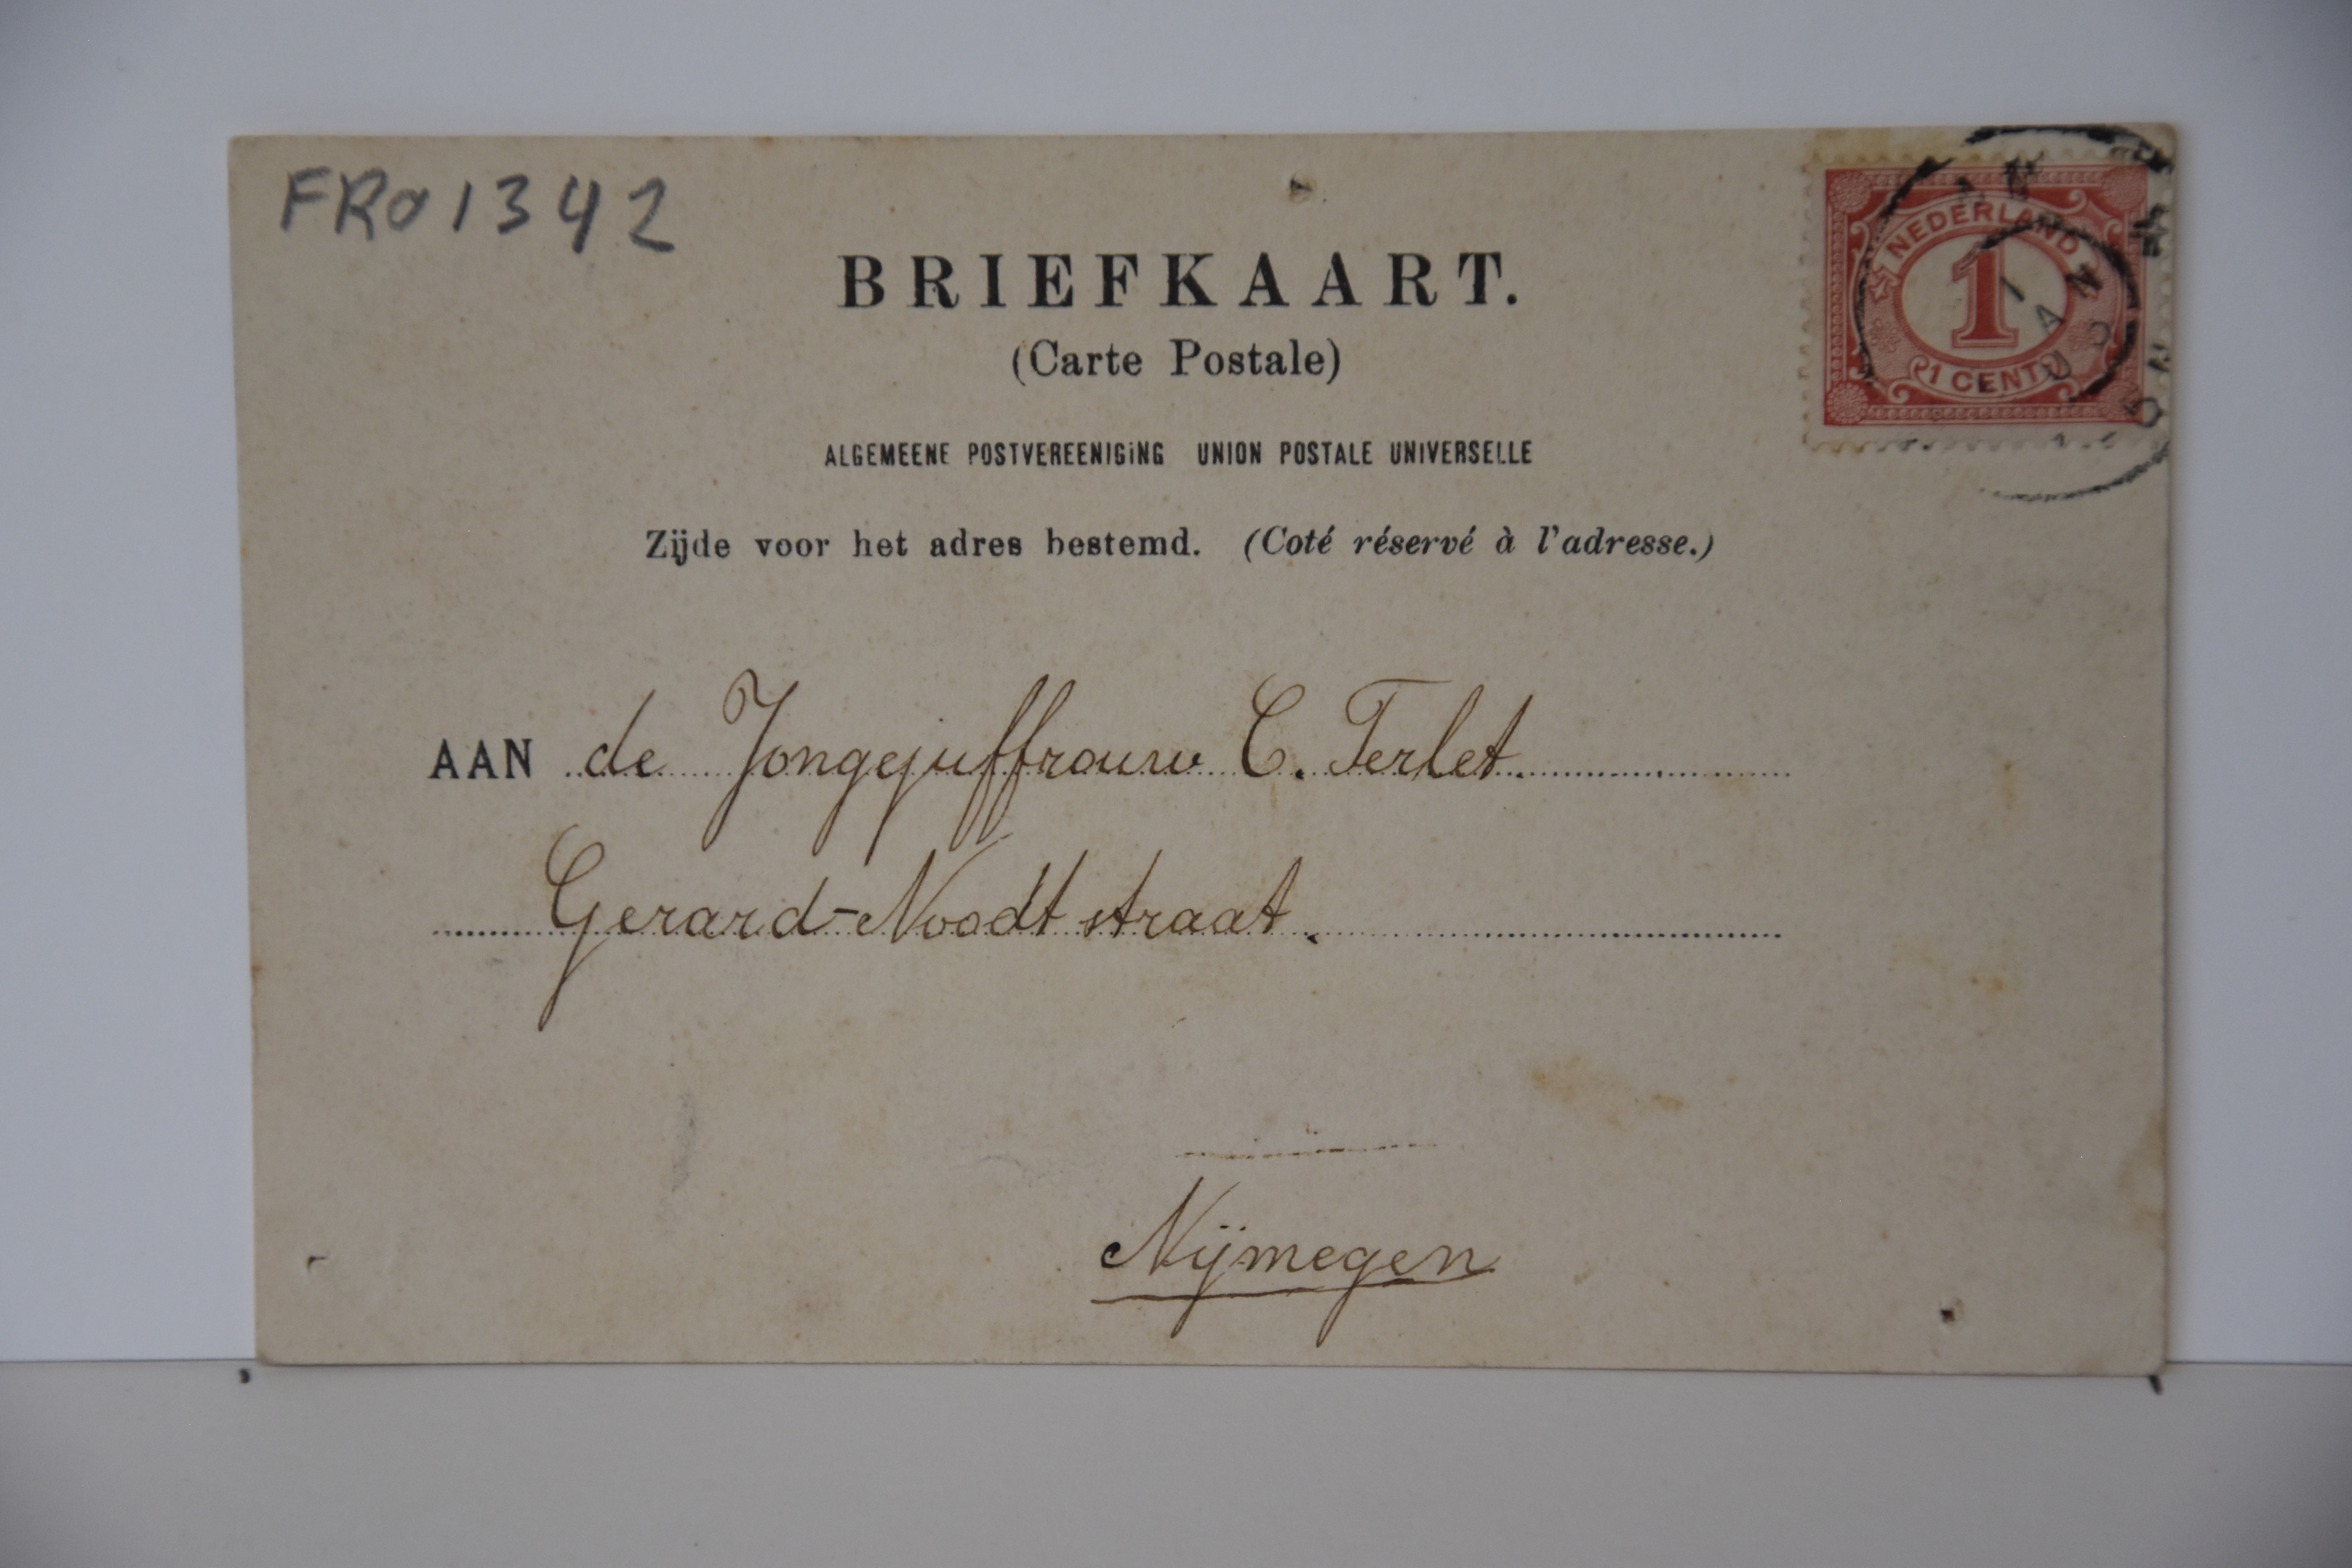 FRO1342
BRIEFKAART.
(Carte Postale)
NEDERLAND
1
1 CENT
ALGEMEENE POSTVEREENIGING UNION POSTALE UNIVERSELLE
Zijde voor het adres bestemd. (Coté réservé à l'adresse.)
AAN de Jongejuffrouw C. Terlet.
Gerard-Noodt straat.
Nijmegen